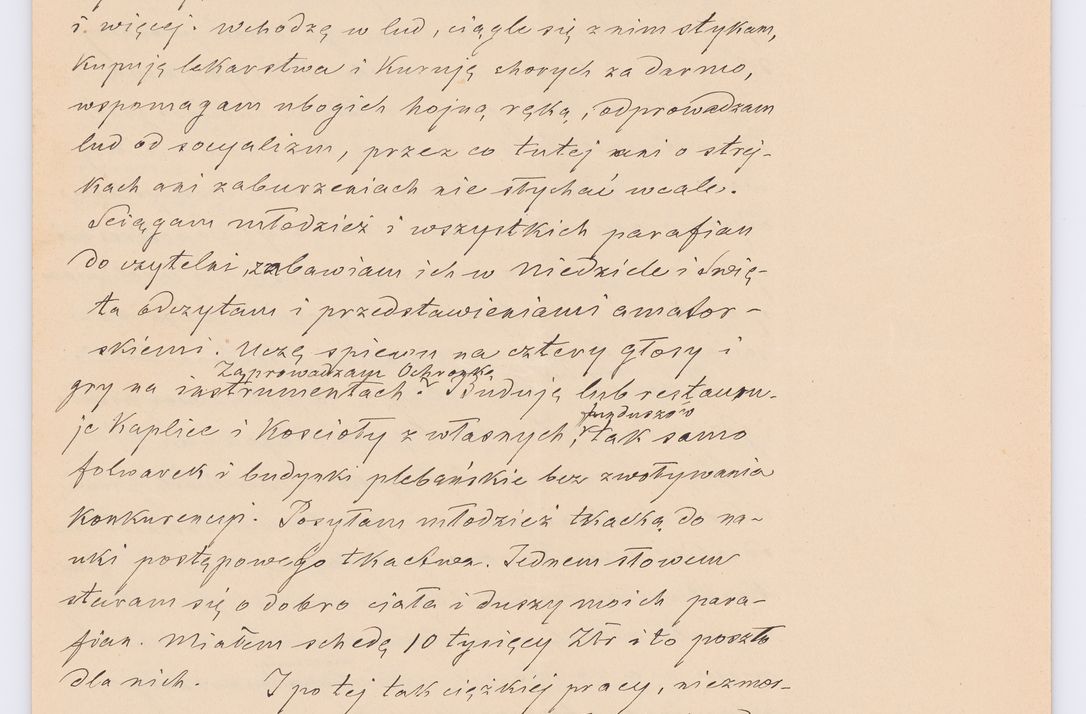 i więcej. Wchodzę w lud, ciągle się z nim stykam,
kupuję lekarstwa i kuruję chorych za darmo,
wspomagam ubogich hojną ręką, odprowadzam
lud od socyalizm, przez co tutej ani o strej-
kach ani zaburzeniach nie słychać wcale.
Ściągam młodzież i wszystkich parafian
do czytelni, zabawiam ich w Niedziele i Świę-
ta odczytam i przedstawieniami amator-
skiemi. Uczę śpiewu na cztery głosy i
Zaprowadzam Ochronkę
gry na instrumentach. Buduję lub restauru-
funduszów
je Kaplice i Kościoły z własnych, tak samo
folwarek i budynki plebańskie bez zwoływania
Konkurencyi. Posyłam młodzież tkacką do na-
uki postępowego tkactwa. Jednem słowem
staram się o dobro ciała i duszy moich para-
fian. Miałem schedę 10 tysięcy Złr i to poszło
dla nich. I po tej tak ciężkiej pracy, niezmor-